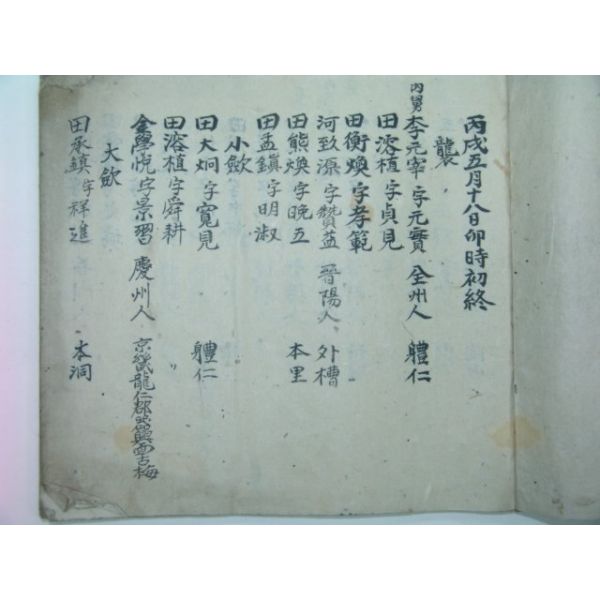 丙戌五月十八日卯時初終
襲
內舅李元宰字元賓 全州人 軆仁
田溶植字貞見
田衡煥字孝範
河致源字贊益 晉陽人 外槽
田熊煥字晩五 本里
田孟鎭字明淑
小歛
田大炯字寬見 軆仁
田溶植字舜耕
金學悅字景習 慶州人 京畿龍仁郡 面古梅
大歛
田承鎭字祥進 本洞